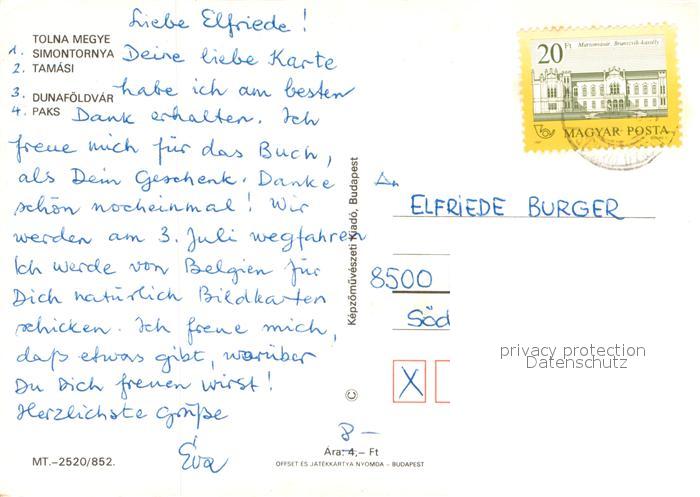 Liebe Elfriede!
TOLNA MEGYE
1. SIMONTORNYA
2. TAMÁSI
3. DUNAFÖLDVÁR
4. PAKS
Deine liebe Karte
habe ich am besten
Dank erhalten. Ich
freue mich für das Buch,
als Dein Geschenk. Danke
schön nocheinmal! Wir
werden am 3. Juli wegfahren
Ich werde von Belgien für
Dich natürlich Bildkarten
schicken. Ich freue mich,
daß etwas gibt, worüber
Du Dich freuen wirst!
Herzlichste Grüße
Éva
MT.–2520/852.
Képzőművészeti Kiadó, Budapest
©
8–
Ára: 4,– Ft
OFFSET ÉS JÁTÉKKÁRTYA NYOMDA – BUDAPEST
20 Ft
Martonvásár, Brunszvik-kastély
MAGYAR POSTA
An
ELFRIEDE BURGER
8500
Söd
X
privacy protection
Datenschutz